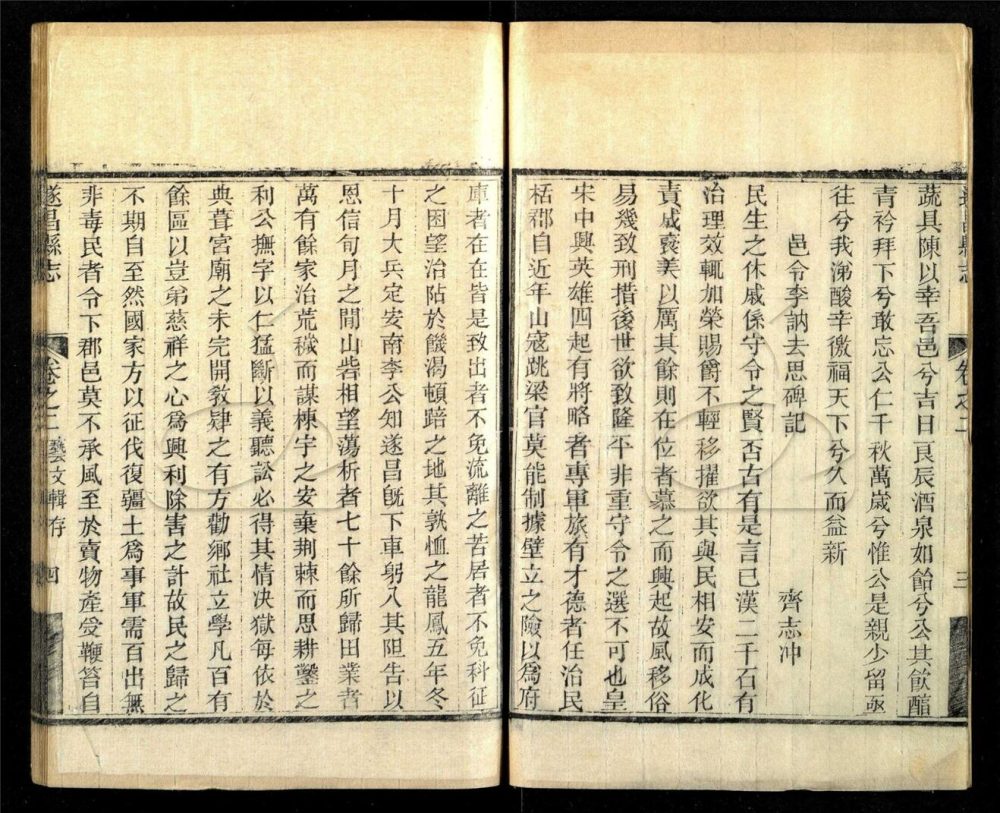 遂昌縣志
卷之二
三
蔬具陳以幸吾邑兮吉日良辰酒泉如飴兮公其飲酯
青衿拜下兮敢忘公仁千秋萬歲兮惟公是親少留亟
往兮我涕酸辛徼福天下兮久而益新
邑令李訥去思碑記
齊志冲
民生之休戚係守令之賢否古有是言已漢二千石有
治理效輒加榮賜爵不輕移擢欲其與民相安而成化
責成褒美以厲其餘則在位者慕之而興起故風移俗
易幾致刑措後世欲致隆平非重守令之選不可也皇
宋中興英雄四起有將略者專軍旅有才德者任治民
栝郡自近年山寇跳梁官莫能制據壁立之險以為府
庫者在在皆是致出者不免流離之苦居者不免科征
之困望治阽於饑渴頓踣之地其孰恤之龍鳳五年冬
十月大兵定安南李公知遂昌旣下車躬入其阻告以
恩信旬月之間山砦相望蕩析者七十餘所歸田業者
萬有餘家治荒穢而謀棟宇之安棄荆棘而思耕鑿之
利公撫字以仁猛斷以義聽訟必得其情决獄每依於
典葺宮廟之未完開敎肄之有方勸鄉社立學凡百有
餘區以豈弟慈祥之心為興利除害之計故民之歸之
不期自至然國家方以征伐復疆土為事軍需百出無
非毒民者令下郡邑莫不承風至於賣物產受鞭笞自
遂昌縣志
卷之二
藝文輯存
四